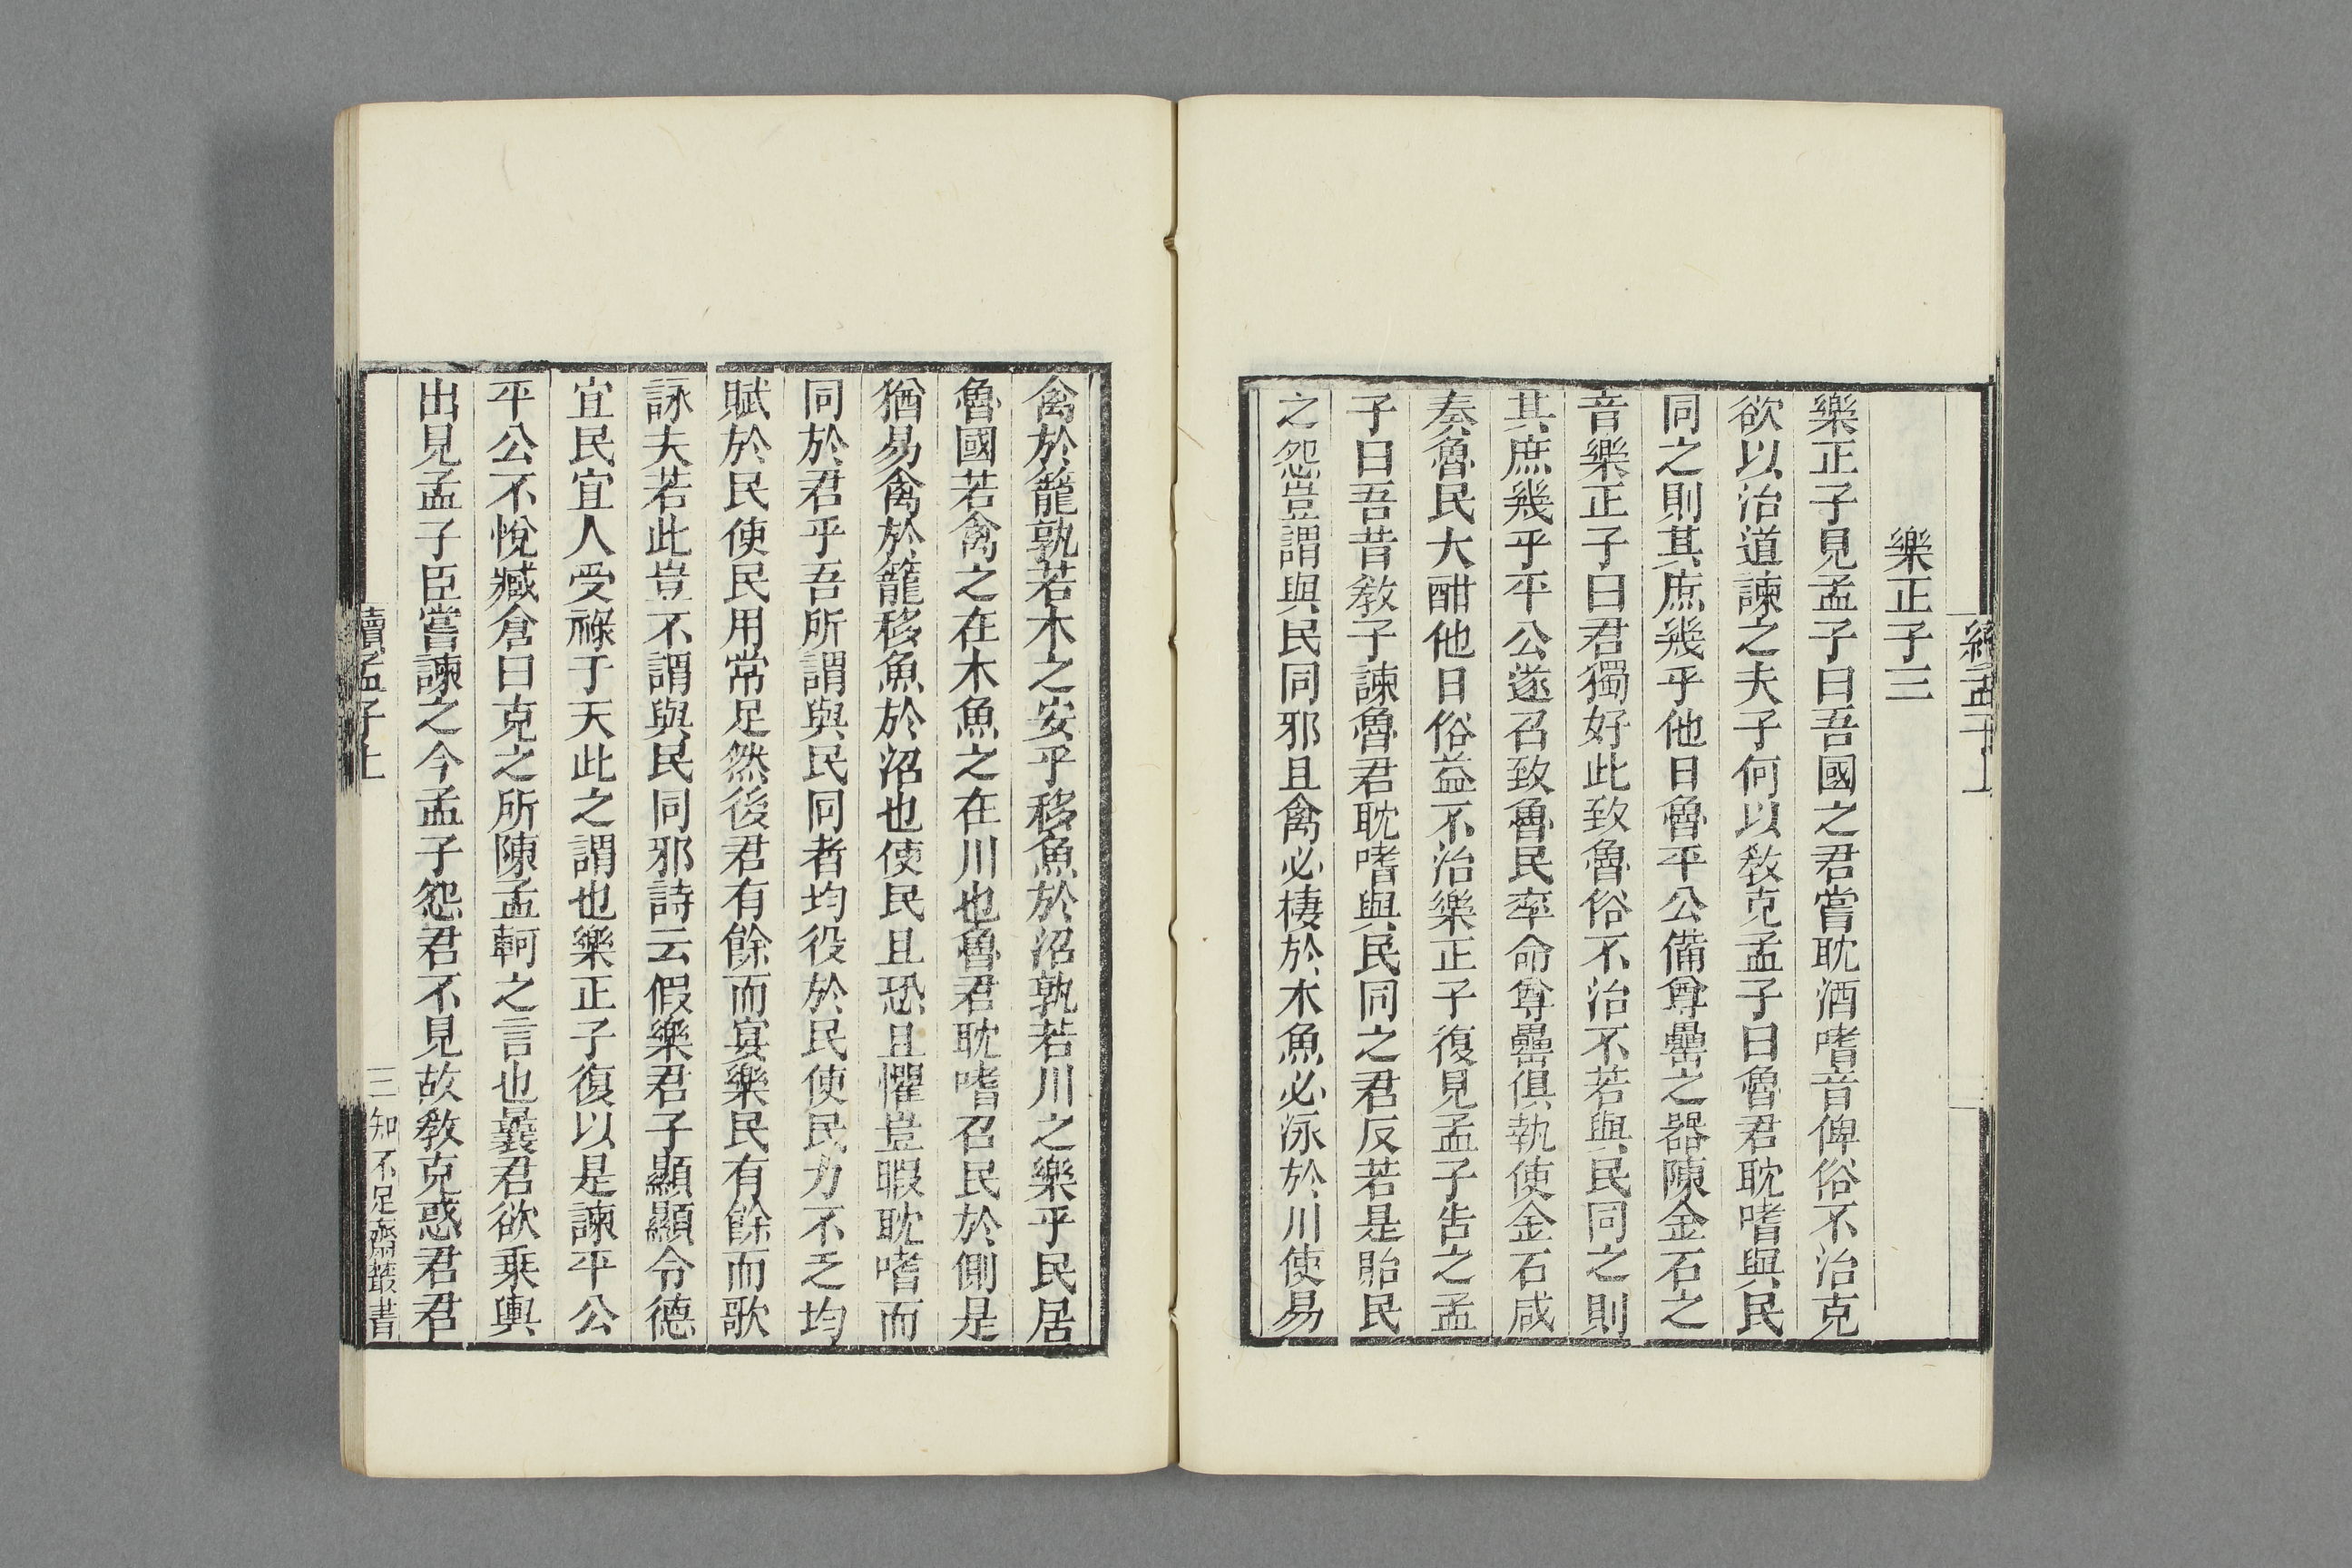 續孟子上
樂正子三
樂正子見孟子曰吾國之君嘗耽酒嗜音俾俗不治克
欲以治道諫之夫子何以敎克孟子曰魯君耽嗜與民
同之則其庶幾乎他日魯平公備尊罍之器陳金石之
音樂正子曰君獨好此致魯俗不治不若與民同之則
其庶幾乎平公遂召致魯民率命尊罍俱執使金石咸
奏魯民大酣他日俗益不治樂正子復見孟子告之孟
子曰吾昔敎子諫魯君耽嗜與民同之君反若是貽民
之怨豈謂與民同邪且禽必棲於木魚必泳於川使易
禽於籠孰若木之安乎移魚於沼孰若川之樂乎民居
魯國若禽之在木魚之在川也魯君耽嗜召民於側是
猶易禽於籠移魚於沼也使民且恐且懼豈暇耽嗜而
同於君乎吾所謂與民同者均役於民使民力不乏均
賦於民使民用常足然後君有餘而宴樂民有餘而歌
詠夫若此豈不謂與民同邪詩云假樂君子顯顯令德
宜民宜人受祿于天此之謂也樂正子復以是諫平公
平公不悅臧倉曰克之所陳孟軻之言也曩君欲乘輿
出見孟子臣嘗諫之今孟子怨君不見故敎克惑君君
續孟子上
三
知不足齋叢書